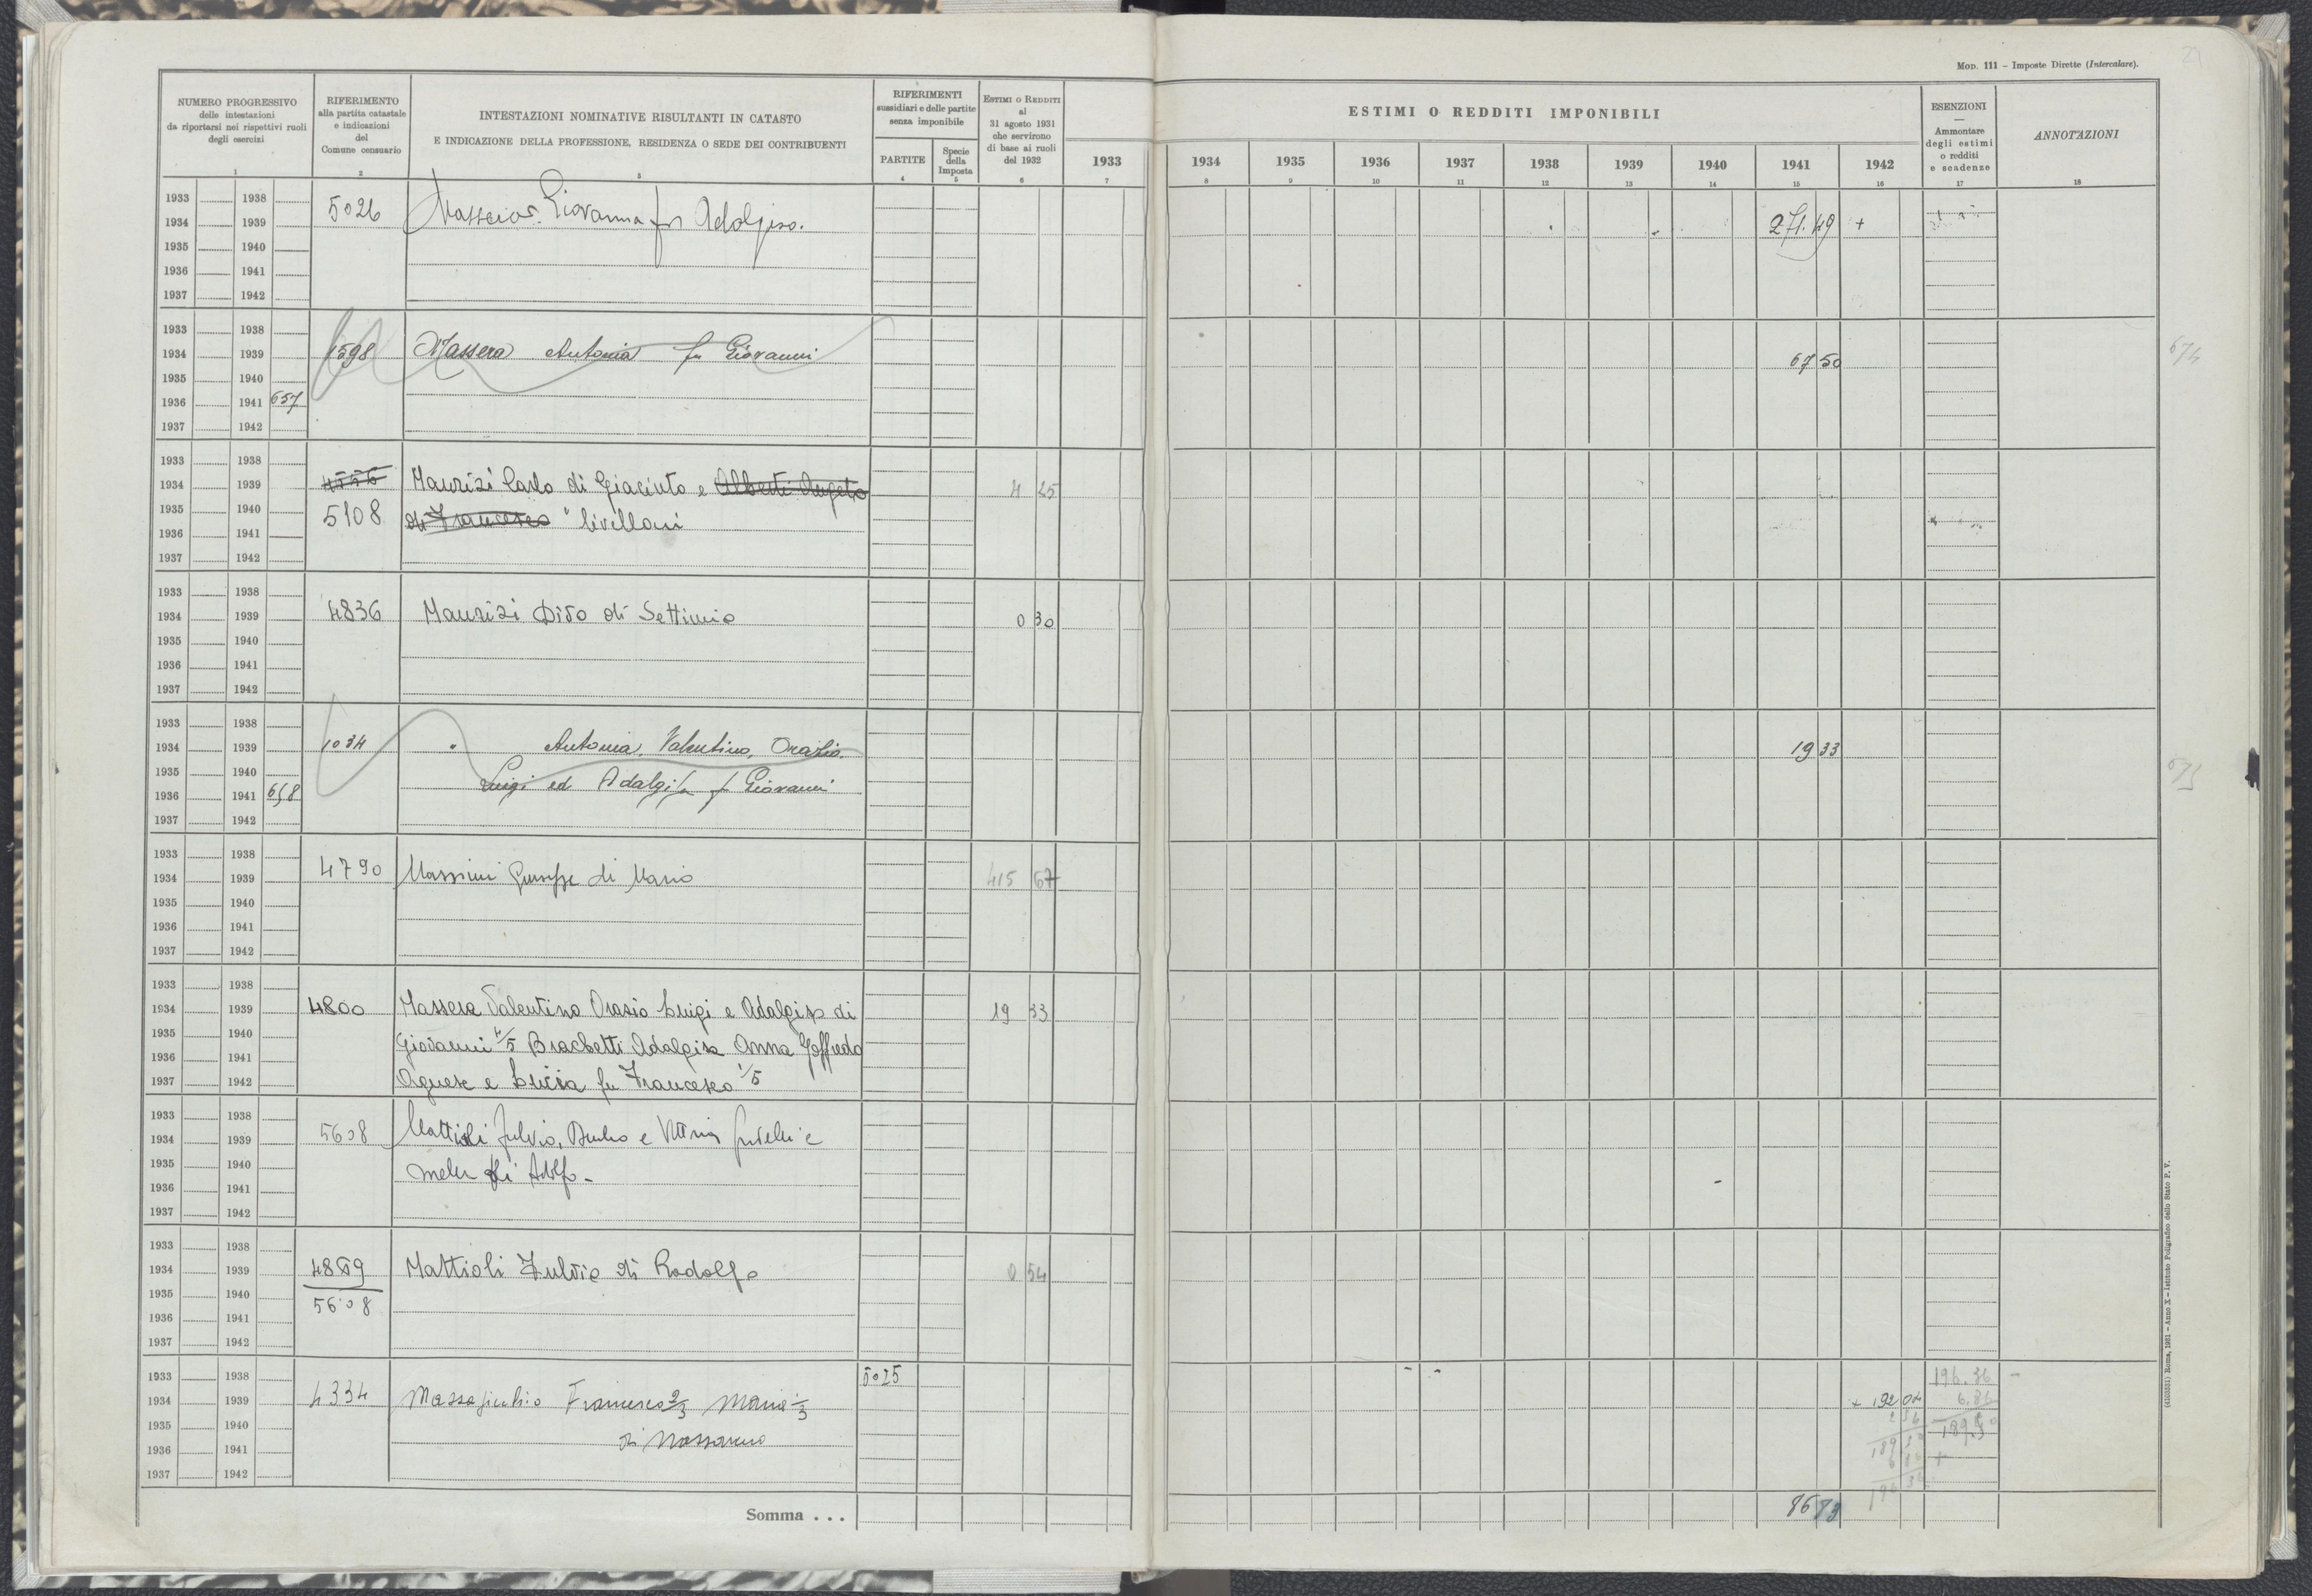 21
MOD. 111 – Imposte Dirette (Intercalare).
NUMERO PROGRESSIVO
delle intestazioni
da riportarsi nei rispettivi ruoli
degli esercizi
1
RIFERIMENTO
alla partita catastale
e indicazioni
del
Comune censuario
2
INTESTAZIONI NOMINATIVE RISULTANTI IN CATASTO
E INDICAZIONE DELLA PROFESSIONE, RESIDENZA O SEDE DEI CONTRIBUENTI
3
RIFERIMENTI
sussidiari e delle partite
senza imponibile
PARTITE
4
Specie
della
Imposta
5
ESTIMI O REDDITI
al
31 agosto 1931
che servirono
di base ai ruoli
del 1932
6
1933
7
ESTIMI O REDDITI IMPONIBILI
1934 1935 1936 1937 1938 1939 1940 1941 1942
8 9 10 11 12 13 14 15 16
ESENZIONI
—
Ammontare
degli estimi
o redditi
e scadenze
17
ANNOTAZIONI
18
1933 1938
1934 1939
1935 1940
1936 1941
1937 1942
5026 Giovanna fu Adalgiso.
271.49 +
1933 1938
1934 1939
1935 1940
1936 1941 657
1937 1942
1598 Massera Antonia fu Giovanni
67 50
674
1933 1938
1934 1939
1935 1940
1936 1941
1937 1942
5108
Maurizi Carlo di Giacinto e Alberti Angelo
di Francesco " livellari
4 25
1933 1938
1934 1939
1935 1940
1936 1941
1937 1942
4836 Maurizi Dido di Settimio
0 30
1933 1938
1934 1939
1935 1940
1936 1941 658
1937 1942
1034 " Antonia, Valentino, Orazio,
Luigi ed Adalgisa fu Giovanni
19 33
675
1933 1938
1934 1939
1935 1940
1936 1941
1937 1942
4790 Massimi Giuseppe di Mario
415 67
1933 1938
1934 1939
1935 1940
1936 1941
1937 1942
4800 Massera Valentino Orazio Luigi e Adalgisa di
Giovanni 4/5 Brachetti Adalgisa Anna Goffredo
Agnese e Lucia fu Francesco 1/5
19 33
1933 1938
1934 1939
1935 1940
1936 1941
1937 1942
5608 Mattioli Fulvio, e
di
1933 1938
1934 1939
1935 1940
1936 1941
1937 1942
4869
5608
Mattioli Fulvio di Rodolfo
0 54
1933 1938
1934 1939
1935 1940
1936 1941
1937 1942
4334 Francesco 2/3 Maria 1/3
di
5025
+ 192 04
196.36
Somma . . .
86 83
(4103331) Roma, 1931 – Anno X – Istituto Poligrafico dello Stato P. V.